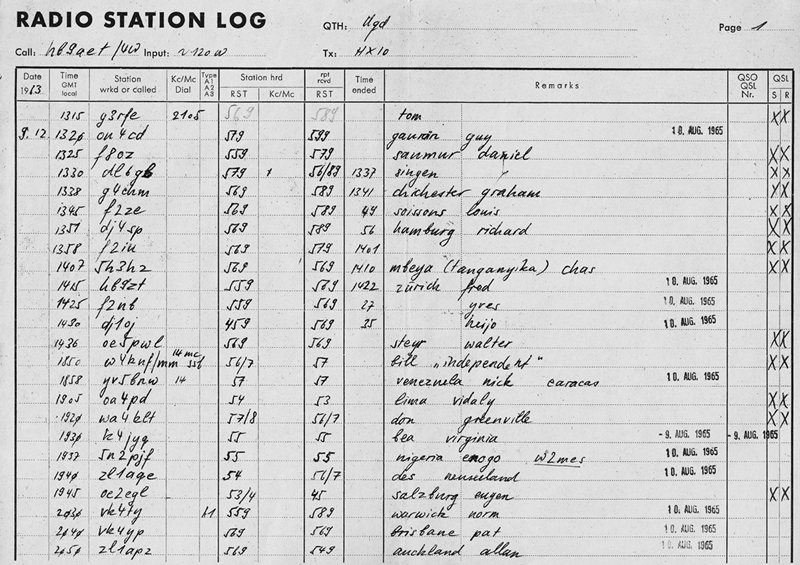 RADIO STATION LOG QTH: Ugd Page 1
Call: hb9aet/4W Input: ~120w Tx: HX10
Date 1963. Time GMT local Station wrkd or called Kc/Mc Dial Type A1 A2 A3 Station hrd RST Kc/Mc rpt rcvd RST Time ended Remarks QSO QSL Nr. QSL S R
1315 g3rfe 2105 569 589 tom XX
9.12. 132ø on4cd 579 599 guy 10. AUG. 1965
1325 f8oz 559 579 saumur daniel XX
1330 dl6gb 579 x 56/89 1337 singen XX
1328 g4chm 569 589 1341 chichester graham XX
1345 f2ze 569 589 49 soissons louis XX
1351 dj4sp 569 589 56 hamburg richard XX
1358 f2iu 569 579 1401 XX
1407 5h3hz 569 569 1410 mbeya (tanganyika) chas XX
1415 hb9zt 559 569 1422 zürich fred 10. AUG. 1965
1425 f2nb 559 569 27 yves 10. AUG. 1965
1430 dj1oj 459 569 35 heijo 10. AUG. 1965
1436 oe5pwl 569 569 steyr walter XX
1850 w4knf/mm 14 mc ssb 56/7 57 bill „independent" XX
1858 yv5bnw 14 57 57 venezuela nick caracas 10. AUG. 1965
1905 oa4pd 54 53 lima vidaly XX
192ø wa4blt 57/8 56/7 don greenville XX
193ø k4jyq 55 55 bea virginia - 9. AUG. 1965 - 9. AUG. 1965
1937 5n2pjf 55 55 nigeria enogo w2mes 10. AUG. 1965
194ø zl1age 54 56/7 des neuseeland 10. AUG. 1965
1945 oe2egl 53/4 45 salzburg eugen XX
2ø3ø vk4ty A1 559 589 warwick norm 10. AUG. 1965
2ø4ø vk4yp 569 569 brisbane pat 10. AUG. 1965
2ø5ø zl1apz 569 549 auckland allan 10. AUG. 1965